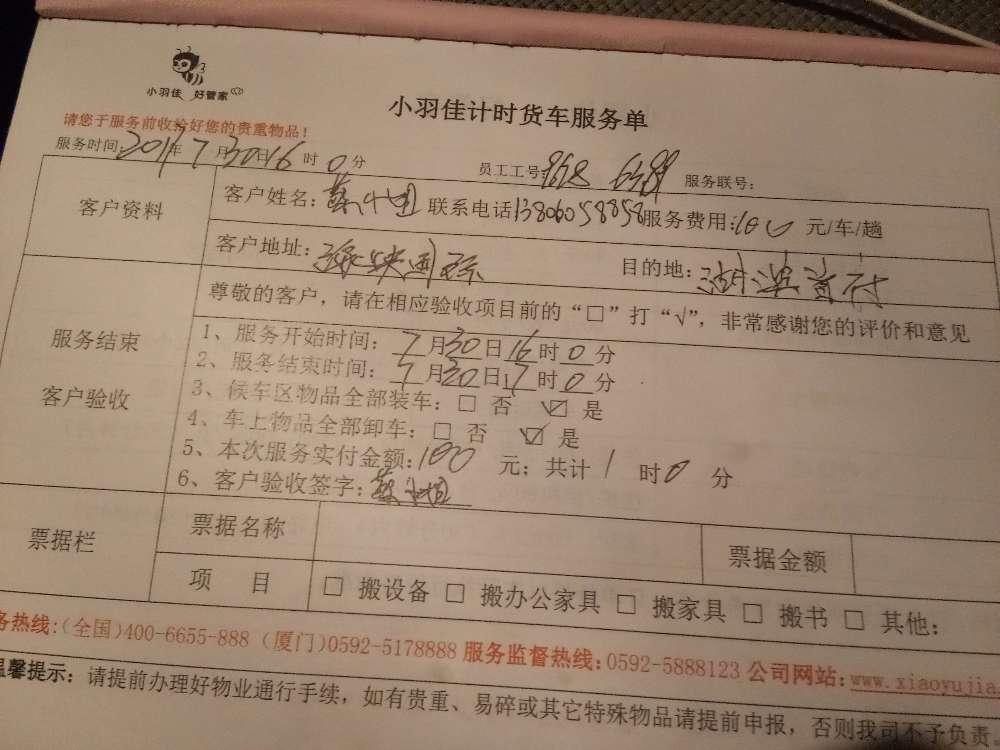 小羽佳 好管家
小羽佳计时货车服务单
请您于服务前收给好您的贵重物品！
服务时间: 2017年7月30日16时0分 员工工号: 服务联号:
客户资料
客户姓名: 联系电话13806058858服务费用:100元/车/趟
客户地址: 目的地:
服务结束
客户验收
尊敬的客户，请在相应验收项目前的“□”打“√”，非常感谢您的评价和意见
1、服务开始时间：7月30日16时0分
2、服务结束时间：7月30日17时0分
3、候车区物品全部装车：□ 否 ☑ 是
4、车上物品全部卸车：□ 否 ☑ 是
5、本次服务实付金额:100元；共计1时0分
6、客户验收签字:
票据栏
票据名称 票据金额
项 目 □ 搬设备 □ 搬办公家具 □ 搬家具 □ 搬书 □ 其他：
务热线:(全国)400-6655-888 (厦门)0592-5178888 服务监督热线:0592-5888123 公司网站:www.xiaoyujia.
温馨提示：请提前办理好物业通行手续，如有贵重、易碎或其它特殊物品请提前申报，否则我司不予负责。